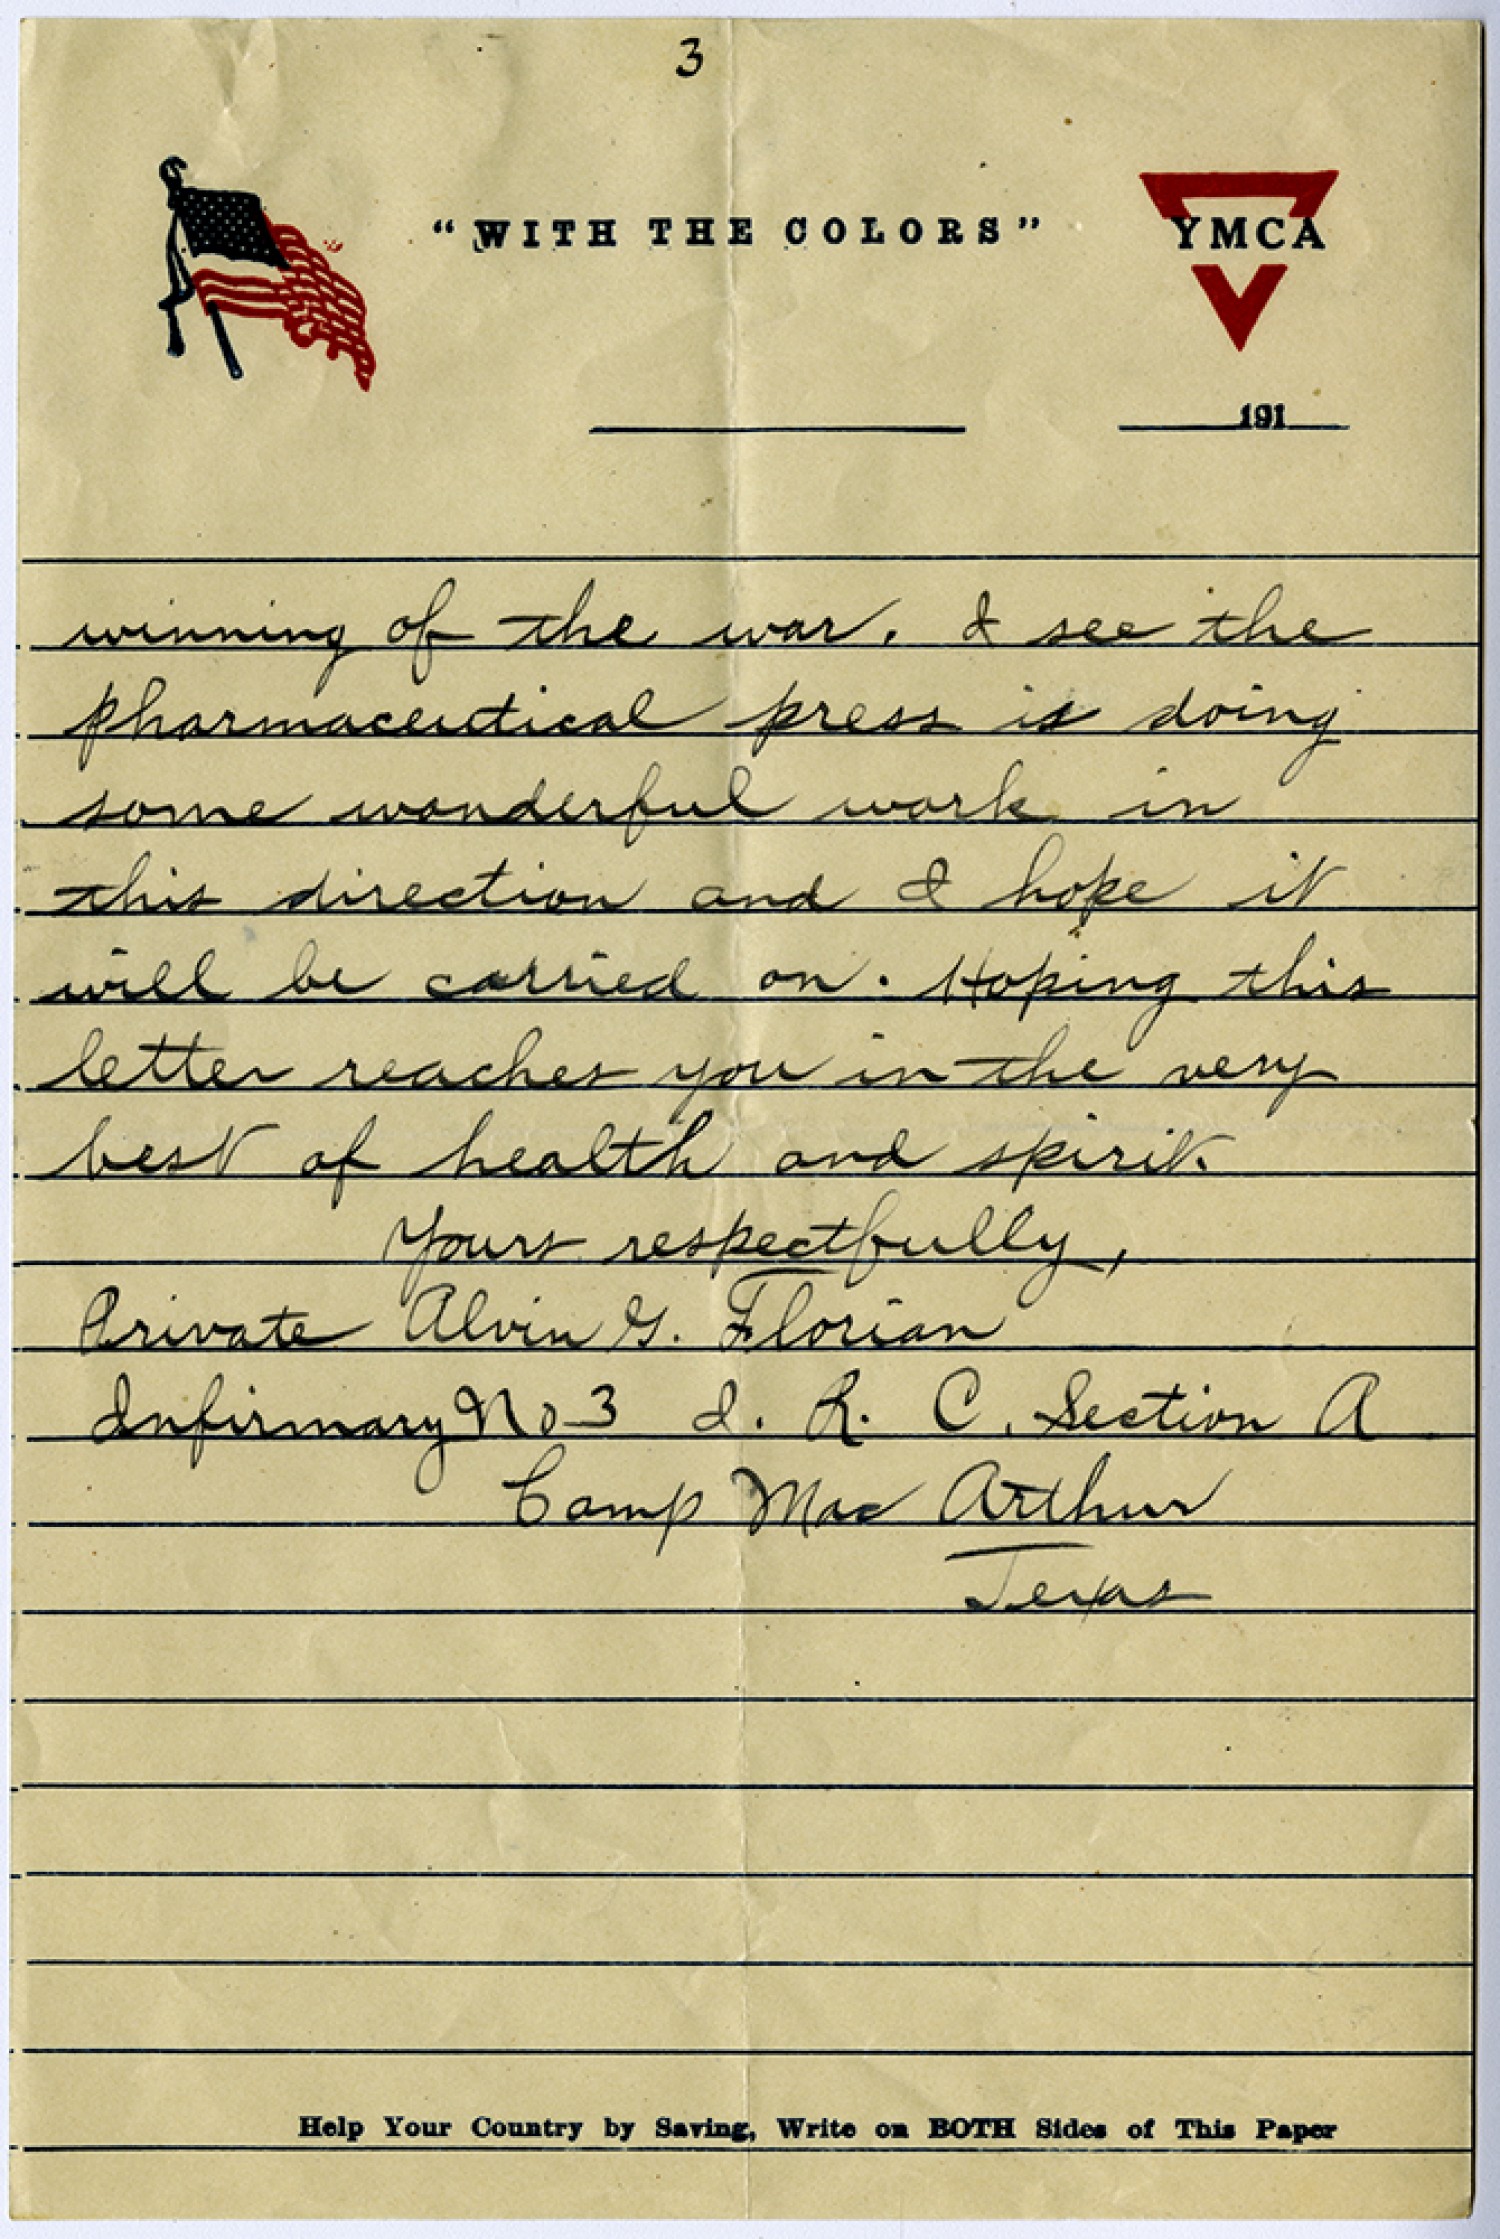 3
"WITH THE COLORS"
YMCA
191
winning of the war. I see the
pharmaceutical press is doing
some wonderful work in
this direction and I hope it
will be carried on. Hoping this
letter reaches you in the very
best of health and spirit.
Yours respectfully,
Private Alvin G. Florian
Infirmary No 3 I. R. C. Section A
Camp Mac Arthur
Texas
Help Your Country by Saving, Write on BOTH Sides of This Paper